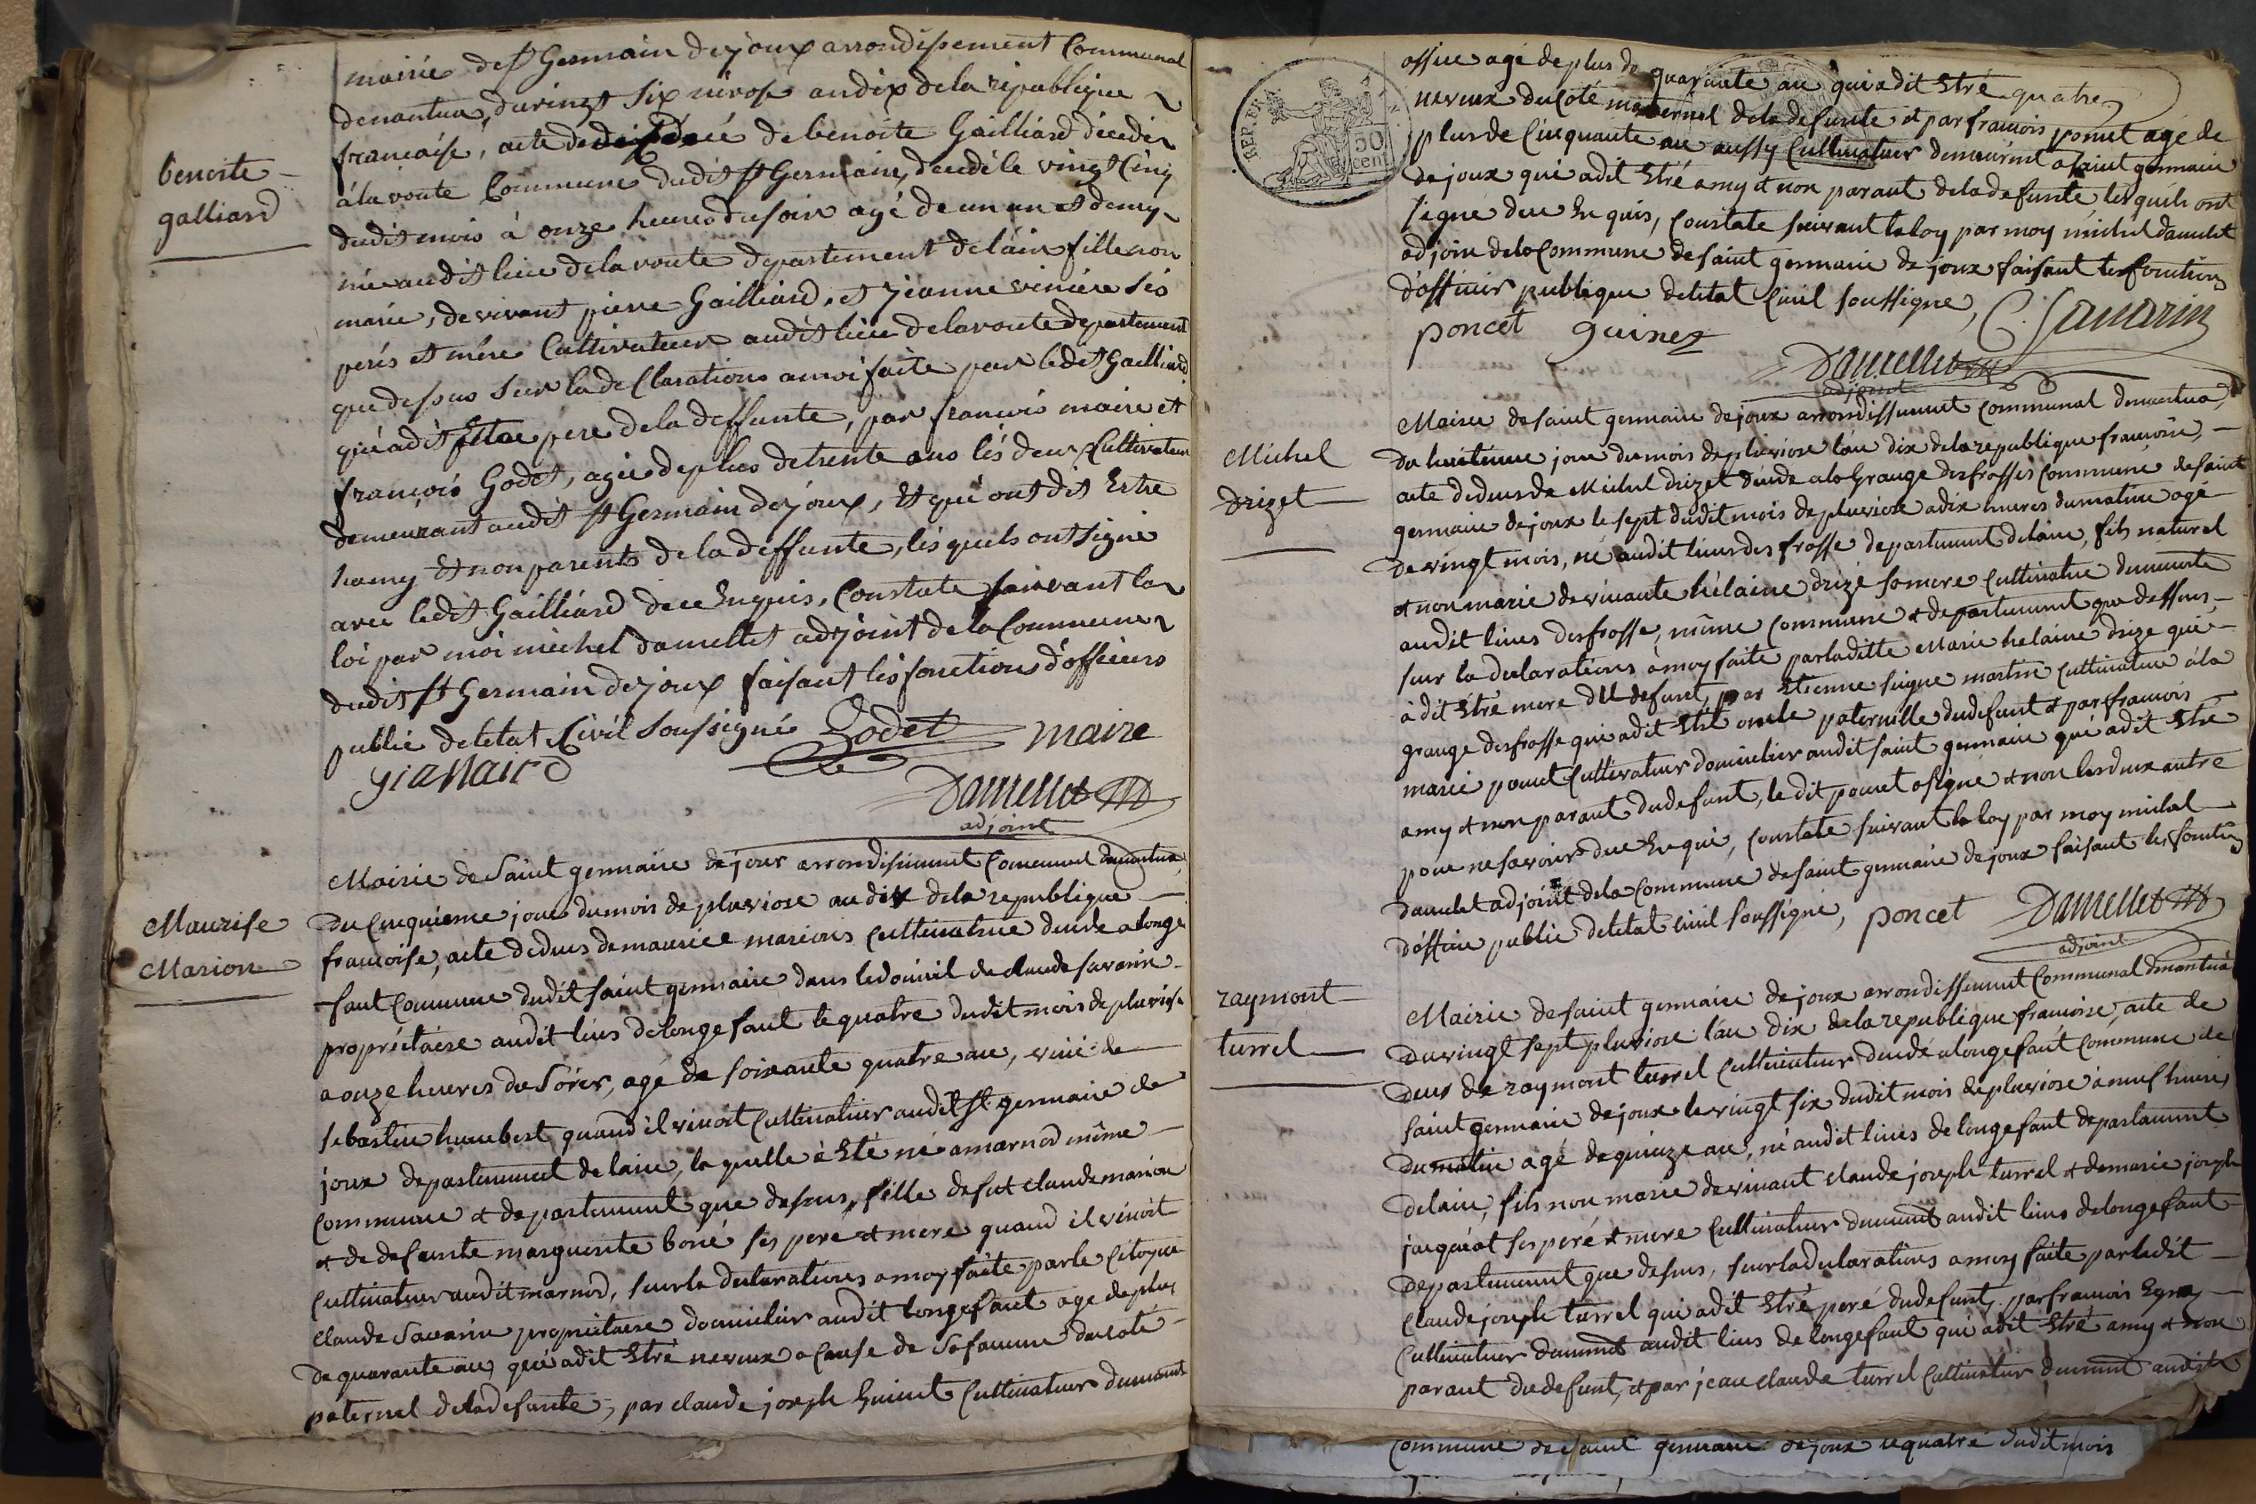 mairie de st Germain dejoux arrondissement Communal
denantua, du vingt six nivose an dix de la république
francaise, acte de décé de benoite Gailliard décedé
benoite
galliard
à la voute Commune dudit st Germain, décédé le vingt Cinq
dudit mois à onze heures du soir agé de un an et demy
née audit lieu de la voute departement de lain fille non
mariée, de vivant pierre Gailliard, et jeanne vinière ses
perés et mére Cultivateur audit lieu de la voute departement
que dessus sur la déclarations a moi faite par ledit Gailliard
qui a dit Etre pere de la deffunte, par francois maire et
françois Godet, agés de plus de trente ans lés deux Cultivateur
demeurant audit st Germain dejoux, Et qui ont dit Estre
hamy Et non parents de la deffunte, lés quels ont signé
avec ledit Gailliard de ce Enquis, Constate suivant la
loi par moi michel damellet adjoint de la Commune
dudit st Germain dejoux faisant lés fonctions d'officiers
public de letat Civil soussigné Godet maire
giallaird
Damellet
adjoint
Mairie de Saint germain de joux arrondisiment Comunal denantua,
Maurise
Marion
Du Cinquieme jour du mois de pluviose an dix dela republique
francoise, acte de deces de maurice marions cultivatrice decede a longe
faut Commune dudit saint germain dans le domicil de claude savarin
propriétaire audit lieus de longe faut le quatre dudit mois de pluviose
a onze heures du Soier, agé de soixante quatre an, veuve de
sebastien humbert quand il vivoit Cultivatier audit st germain de
joux departement de lain, la quelle à Eté né a marnod même
Commune et departement que desus, fille de fut claude marion
et de defunte marguerite boné ses peré et mere quand il vivoit
Cultivatier audit marnod, sur la declarations a moy faite par le citoyen
claude Savarin propriétaire domicilier audit longefaut age de plus
de quarante an, qui a dit Etré neveux a Cause de Sa famme du coté
paternel de la defunte, par claude joseph guinet Cultivateur demeurant
REP. FRA.
50
cent
office agé de plus de quarante an qui a dit Etré quatre
neveux du coté maternel dela defunte et par francois poncet agé de
plus de Cinquante an aussy Cultivateur demeurent a saint germain
de joux qui a dit Etré amy et non parant de la defunte, les quils ont
signe de ce Enquis, Constate suivant la loy par moy michel damelet
adjoin dela Commune de saint germain de joux faisant les fonction
d'officier publique de letat Civil soussigne, C. Savarin
poncet guinet
Damellet
adjoint
Mairie de saint germain de joux arrondissement Communal denantua,
Michel
Drizet
Du huitieme jour du mois de pluviose l'an dix dela republique francoise,
acte de deces de Michel drizet décéde a la Grange des frosses commune de saint
germain de joux le sept dudit mois de pluviose a dix heures du matin agé
de vingt mois, né audit lieus des frosse departement de lain, fils naturel
et non marie de vivante hélaine drizé sa mere cultivatrice demeurante
audit lieus des frosse, même commune et departement que dessus,
sur la declarations à moy faite par laditte Marie helaine drize qui
à dit Etre mere du defunt, par Etienne martin cultivateur à la
grange des frosse qui a dit Etré oncle paternelle du defunt et par francois
marie poncet Cultivateur domicilier audit saint germain qui a dit Etre
amy et non parant du defunt, le dit poncet a signé et non les deux autre
pour ne savoir de ce Enqui, Constate suivant la loy par moy michel
damelet adjoint dela commune de saint germain de joux faisant les fonction
d'officie public de letat civil soussigné, poncet Damellet
adjoint
zaymont
turrel
Mairie de saint germain de joux arrondissement Communal denantua
Du vingt sept pluviose l'an dix dela republique francoise, acte de
deces de zaymont turrel Cultivateur decedé a longefaut commune de
saint germain de joux le vingt six dudit mois de pluviose à neuf heures
du matin agé de quinze an, né audit lieus de longefaut departement
de lain, fils non marie de vivant claude joseph turrel et de marie joseph
jacquéot ses peré et mere Cultivateur demeurent audit lieus de longefaut
departement que desus, sur la declarations a moy faite par ledit
claude joseph turrel qui a dit Etré peré du defunt, par francois
Cultivateur demeurt audit lieus de longefaut qui a dit Etré amy et non
parant du defunt, et par jean claude turrel Cultivateur demeurt audit
commune de saint germain de joux le quatre dudit mois